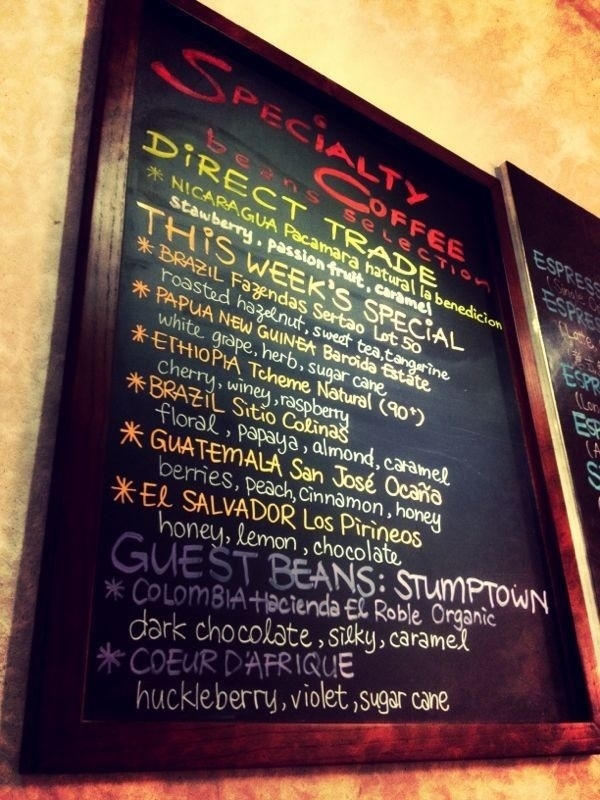 SPECiALTY COFFEE
beans selection
DiRECT TRADE
* NICARAGUA Pacamara natural la benedicion
stawberry, passion fruit, caramel
THiS WEEK'S SPECiAL
* BRAZIL Fazendas Sertao Lot 50
roasted hazelnut, sweet tea, tangerine
* PAPUA NEW GUINEA Baroida Estate
white grape, herb, sugar cane
* ETHIOPIA Tcheme Natural (90+)
cherry, winey, raspberry
* BRAZiL Sitio Colinas
floral, papaya, almond, caramel
* GUATEMALA San José Ocaña
berries, peach, cinnamon, honey
* El SALVADOR Los Pirineos
honey, lemon, chocolate
GUEST BEANS: STUMPTOWN
* COLOMBIA Hacienda El Roble Organic
dark chocolate, silky, caramel
* COEUR D'AFRIQUE
huckleberry, violet, sugar cane